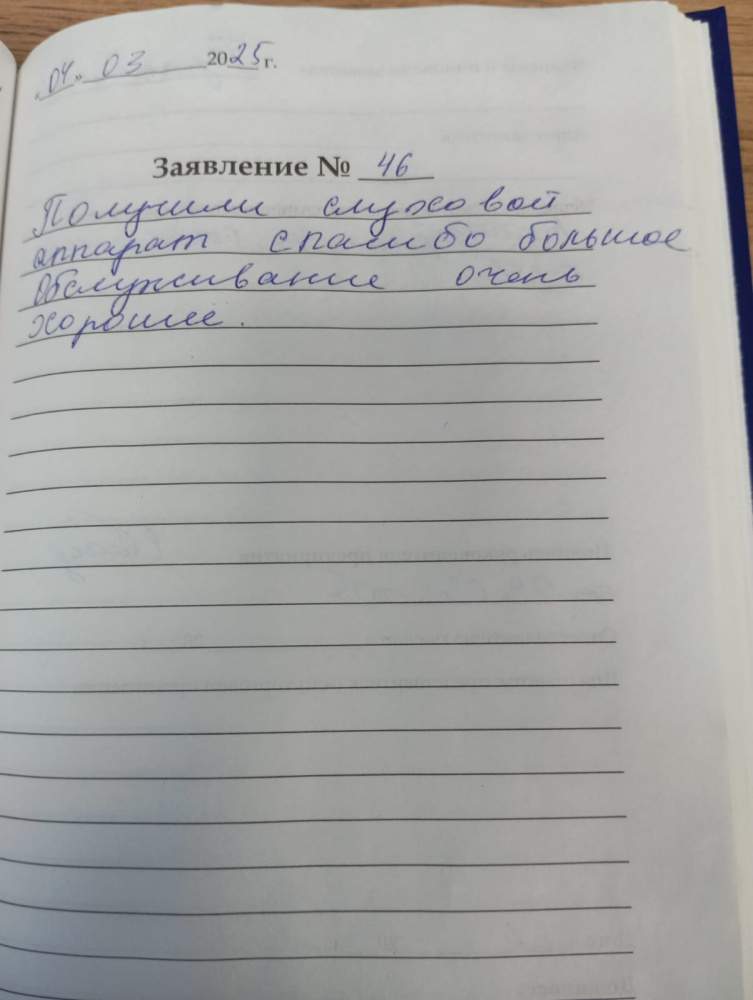 «04» 03 2025 г.
Заявление № 46
Получили слуховой
аппарат спасибо большое
Обслуживание очень
хорошее.